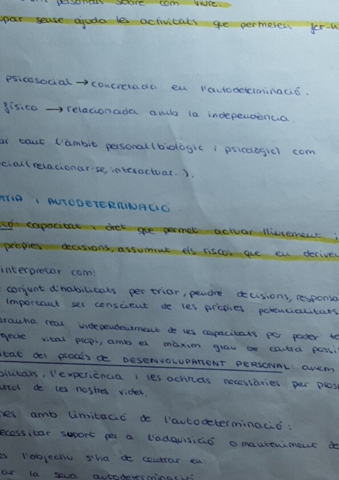 personals sobre com viure.
sense ajuda les activitats que permeten fer-
psicosocial → concretada en l'autodeterminació.
físico → relacionada amb la independència.
tant l'àmbit personal (biològic i psicològic) com
social (relacionar-se, interactuar..).
I AUTODETERMINACIÓ
capacitat i dret que permet actuar lliurement i
pròpies decisions, assumint els riscos que en deriven
interpretar com:
conjunt d'habilitats per triar, prendre decisions, responsa
Important ser conscient de les pròpies potencialitats
real independentment de les capacitats per poder
vital propi, amb el màxim grau de
del procés de DESENVOLUPAMENT PERSONAL
l'experiència i les actituds necessàries per
de les nostres vides.
amb limitació de l'autodeterminació:
necessitar suport per a l'adquisició o manteniment de
l'objectiu s'ha de centrar en:
la seva autodeterminació